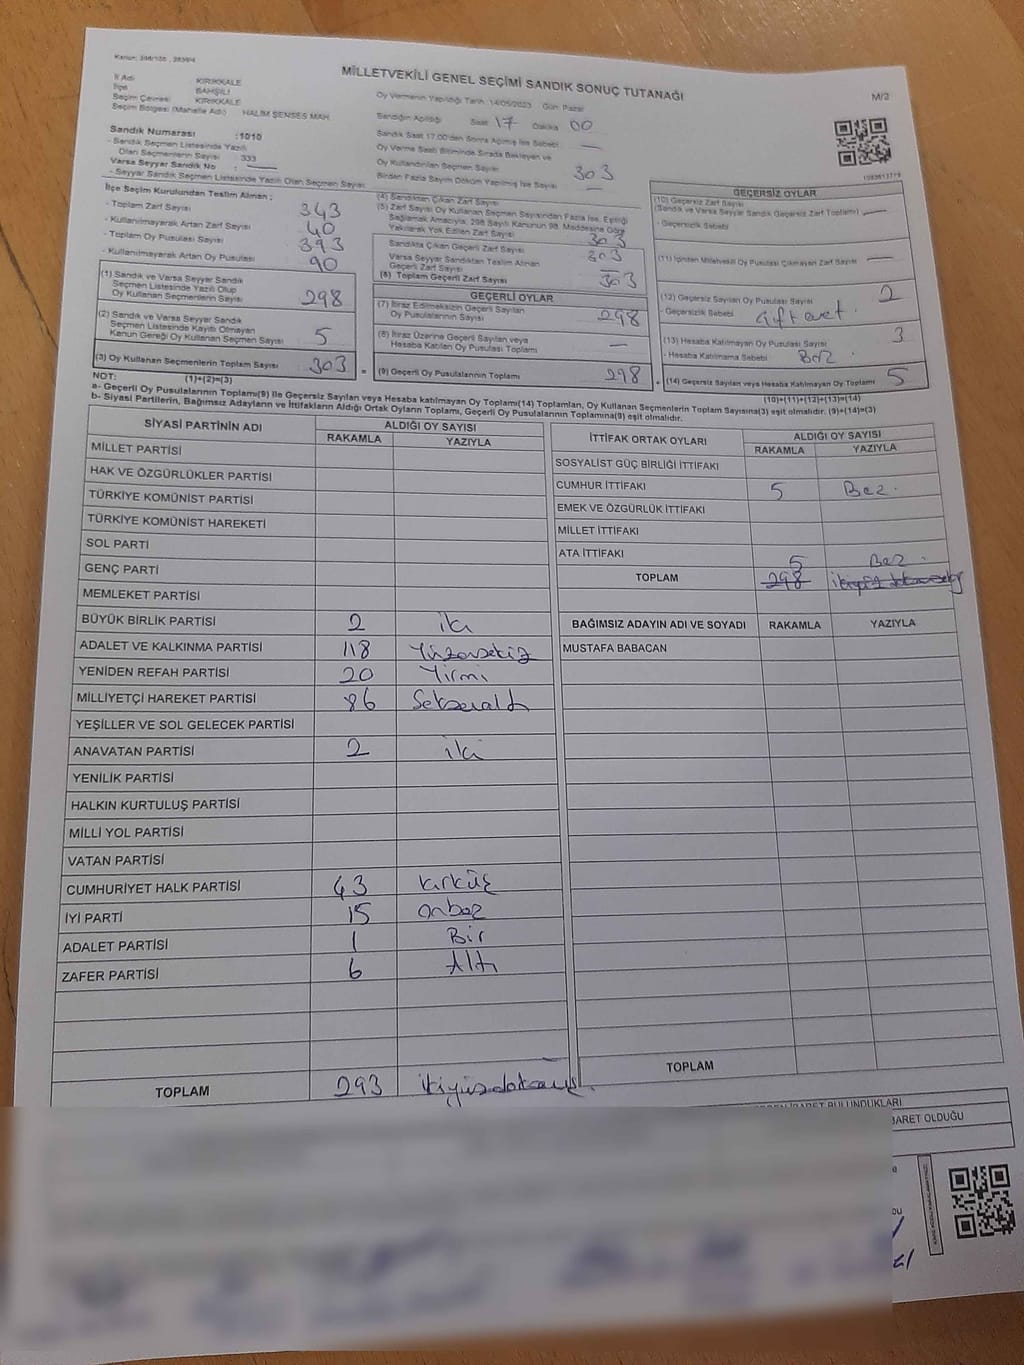 Kanun: 298/105, 2839/4
MİLLETVEKİLİ GENEL SEÇİMİ SANDIK SONUÇ TUTANAĞI
M/2
İl Adı KIRIKKALE
İlçe BAHŞİLİ
Seçim Çevresi KIRIKKALE
Seçim Bölgesi (Mahalle Adı) HALİM ŞENSES MAH.
Sandık Numarası :1010
- Sandık Seçmen Listesinde Yazılı
Olan Seçmenlerin Sayısı 333
Varsa Seyyar Sandık No : —
- Seyyar Sandık Seçmen Listesinde Yazılı Olan Seçmen Sayısı
Oy Vermenin Yapıldığı Tarih :14/05/2023 Gün Pazar
Sandığın Açıldığı Saat 17 Dakika 00
Sandık Saat 17.00'den Sonra Açılmış İse Sebebi —
Oy Verme Saati Bitiminde Sırada Bekleyen ve
Oy Kullandırılan Seçmen Sayısı 303
Birden Fazla Sayım Döküm Yapılmış İse Sayısı —
İlçe Seçim Kurulundan Teslim Alınan ;
- Toplam Zarf Sayısı 343
- Kullanılmayarak Artan Zarf Sayısı 40
- Toplam Oy Pusulası Sayısı 393
- Kullanılmayarak Artan Oy Pusulası 90
(1) Sandık ve Varsa Seyyar Sandık
Seçmen Listesinde Yazılı Olup
Oy Kullanan Seçmenlerin Sayısı 298
(2) Sandık ve Varsa Seyyar Sandık
Seçmen Listesinde Kayıtlı Olmayan
Kanun Gereği Oy Kullanan Seçmen Sayısı 5
(3) Oy Kullanan Seçmenlerin Toplam Sayısı 303
(1)+(2)=(3)
(4) Sandıktan Çıkan Zarf Sayısı
(5) Zarf Sayısı Oy Kullanan Seçmen Sayısından Fazla İse, Eşitliği
Sağlamak Amacıyla, 298 Sayılı Kanunun 98. Maddesine Göre
Yakılarak Yok Edilen Zarf Sayısı 303
Sandıkta Çıkan Geçerli Zarf Sayısı 303
Varsa Seyyar Sandıktan Teslim Alınan
Geçerli Zarf Sayısı —
(6) Toplam Geçerli Zarf Sayısı 303
GEÇERLİ OYLAR
(7) İtiraz Edilmeksizin Geçerli Sayılan
Oy Pusulalarının Sayısı 298
(8) İtiraz Üzerine Geçerli Sayılan veya
Hesaba Katılan Oy Pusulası Toplamı —
(9) Geçerli Oy Pusulalarının Toplamı 298
1083613719
GEÇERSİZ OYLAR
(10) Geçersiz Zarf Sayısı
(Sandık ve Varsa Seyyar Sandık Geçersiz Zarf Toplamı) —
- Geçersizlik Sebebi
(11) İçinden Milletvekili Oy Pusulası Çıkmayan Zarf Sayısı —
(12) Geçersiz Sayılan Oy Pusulası Sayısı 2
- Geçersizlik Sebebi Çift evet.
(13) Hesaba Katılmayan Oy Pusulası Sayısı 3
- Hesaba Katılmama Sebebi Boz.
(14) Geçersiz Sayılan veya Hesaba Katılmayan Oy Toplamı 5
(10)+(11)+(12)+(13)=(14)
NOT:
a- Geçerli Oy Pusulaları(9) ile Geçersiz Sayılan veya Hesaba katılmayan Oy Toplamı(14) Toplamları, Oy Kullanan Seçmenlerin Toplam Sayısına(3) eşit olmalıdır. (9)+(14)=(3)
b- Siyasi Partilerin, Bağımsız Adayların ve İttifakların Aldığı Ortak Oyların Toplamı, Geçerli Oy Pusulalarının Toplamına(9) eşit olmalıdır.
SİYASİ PARTİNİN ADI ALDIĞI OY SAYISI
RAKAMLA YAZIYLA
MİLLET PARTİSİ
HAK VE ÖZGÜRLÜKLER PARTİSİ
TÜRKİYE KOMÜNİST PARTİSİ
TÜRKİYE KOMÜNİST HAREKETİ
SOL PARTİ
GENÇ PARTİ
MEMLEKET PARTİSİ
BÜYÜK BİRLİK PARTİSİ 2 iki
ADALET VE KALKINMA PARTİSİ 118 Yüzonsekiz
YENİDEN REFAH PARTİSİ 20 Yirmi
MİLLİYETÇİ HAREKET PARTİSİ 86 Seksenaltı
YEŞİLLER VE SOL GELECEK PARTİSİ
ANAVATAN PARTİSİ 2 iki
YENİLİK PARTİSİ
HALKIN KURTULUŞ PARTİSİ
MİLLİ YOL PARTİSİ
VATAN PARTİSİ
CUMHURİYET HALK PARTİSİ 43 kırküç
İYİ PARTİ 15 onbeş
ADALET PARTİSİ 1 Bir
ZAFER PARTİSİ 6 Altı
TOPLAM 293 ikiyüzdoksanüç.
İTTİFAK ORTAK OYLARI ALDIĞI OY SAYISI
RAKAMLA YAZIYLA
SOSYALİST GÜÇ BİRLİĞİ İTTİFAKI
CUMHUR İTTİFAKI 5 Beş.
EMEK VE ÖZGÜRLÜK İTTİFAKI
MİLLET İTTİFAKI
ATA İTTİFAKI
5 Beş.
TOPLAM 298
BAĞIMSIZ ADAYIN ADI VE SOYADI RAKAMLA YAZIYLA
MUSTAFA BABACAN
TOPLAM
İBARET BULUNDUKLARI
BARET OLDUĞU